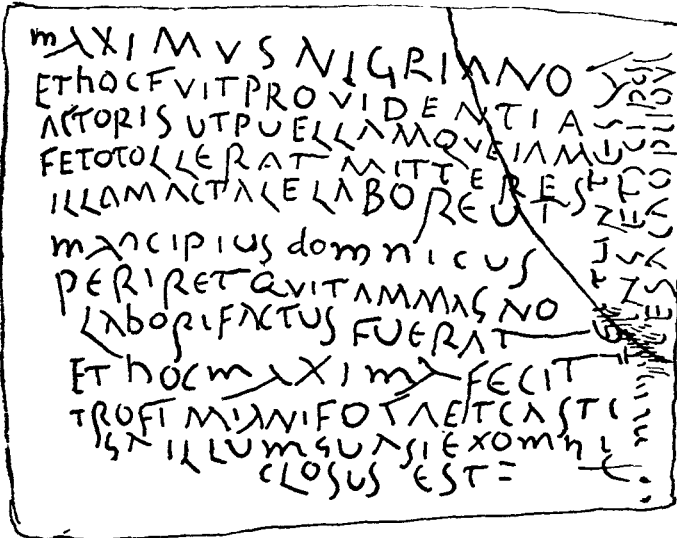 MAXIMVS NIGRIANO
ET HOC FVIT PROVIDENTIA
ACTORIS UT PUELLAM QVE IAM
FETO TOLLERAT MITTERES
ILLAM AC TALE LABORE UT
mancipius domnicus
PERIRET QVI TAM MAGNO
LABORI FACTUS FUERAT
ET hoc maxima FECIT
TROFIMIANI FOTA ET CASTI
GA ILLUM QUASI EX OMNI
CLOSUS EST